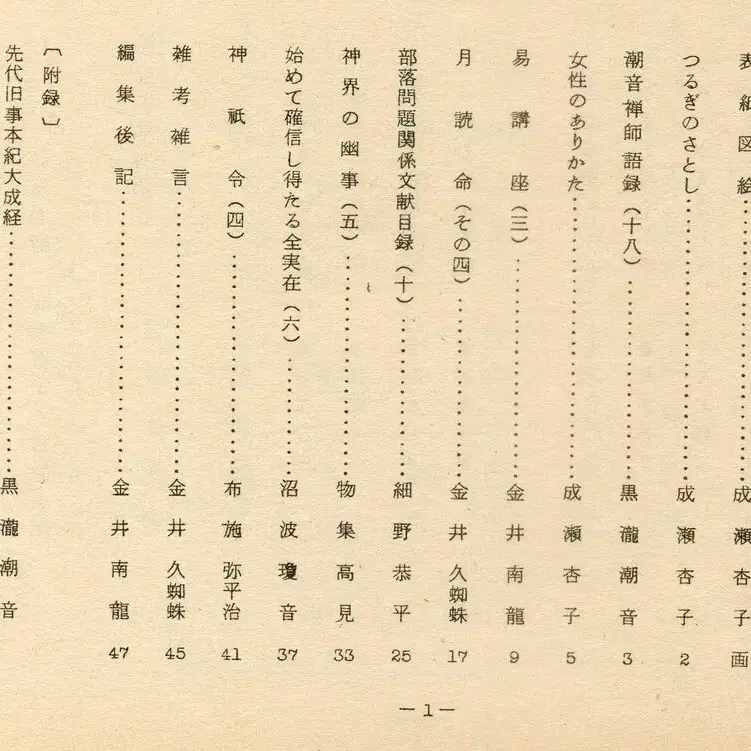 表紙図絵 成瀬杏子画
つるぎのさとし……………………………成瀬杏子 2
潮音禅師語録(十八)……………………黒瀧潮音 3
女性のありかた……………………………成瀬杏子 5
易講座(三)………………………………金井南龍 9
月読命(その四)…………………………金井久蜘蛛 17
部落問題関係文献目録(十)……………細野恭平 25
神界の幽事(五)…………………………物集高見 33
始めて確信し得たる全実在(六)………沼波瓊音 37
神祇令(四)………………………………布施弥平治 41
雑考雑言……………………………………金井久蜘蛛 45
編集後記……………………………………金井南龍 47
〔附録〕
先代旧事本紀大成経………………………黒瀧潮音
—1—